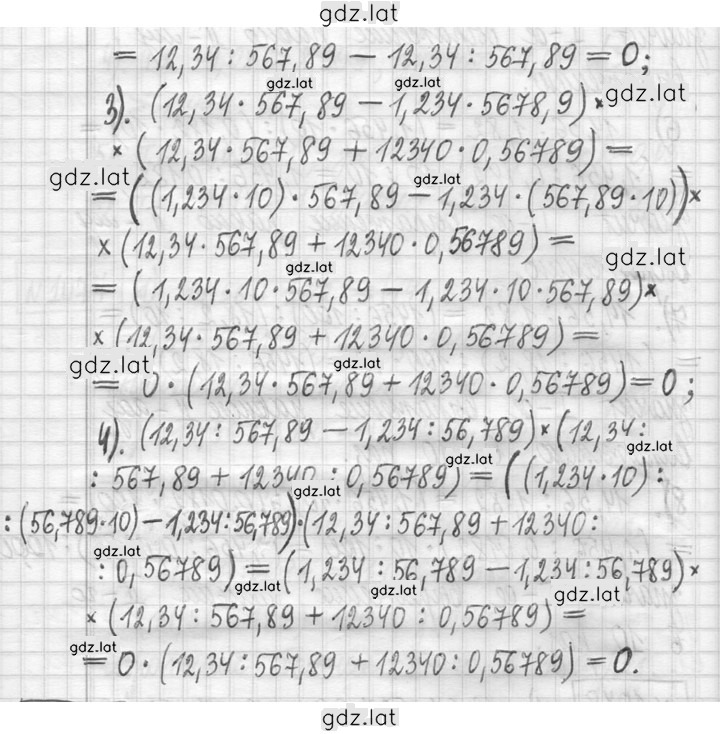 gdz.lat
= 12,34 : 567,89 − 12,34 : 567,89 = 0;
gdz.lat gdz.lat
3). (12,34 · 567,89 − 1,234 · 5678,9) × gdz.lat
× (12,34 · 567,89 + 12340 · 0,56789) =
gdz.lat gdz.lat
= ((1,234 · 10) · 567,89 − 1,234 · (567,89 · 10)) ×
× (12,34 · 567,89 + 12340 · 0,56789) =
gdz.lat gdz.lat
= (1,234 · 10 · 567,89 − 1,234 · 10 · 567,89) ×
× (12,34 · 567,89 + 12340 · 0,56789) =
gdz.lat gdz.lat
= 0 · (12,34 · 567,89 + 12340 · 0,56789) = 0;
4). (12,34 : 567,89 − 1,234 : 56,789) × (12,34 :
gdz.lat gdz.lat
: 567,89 + 12340 : 0,56789) = ((1,234 · 10) :
gdz.lat
: (56,789 · 10) − 1,234 : 56,789) · (12,34 : 567,89 + 12340 :
gdz.lat
: 0,56789) = (1,234 : 56,789 − 1,234 : 56,789) ×
gdz.lat gdz.lat
× (12,34 : 567,89 + 12340 : 0,56789) =
gdz.lat
= 0 · (12,34 : 567,89 + 12340 : 0,56789) = 0.
gdz.lat